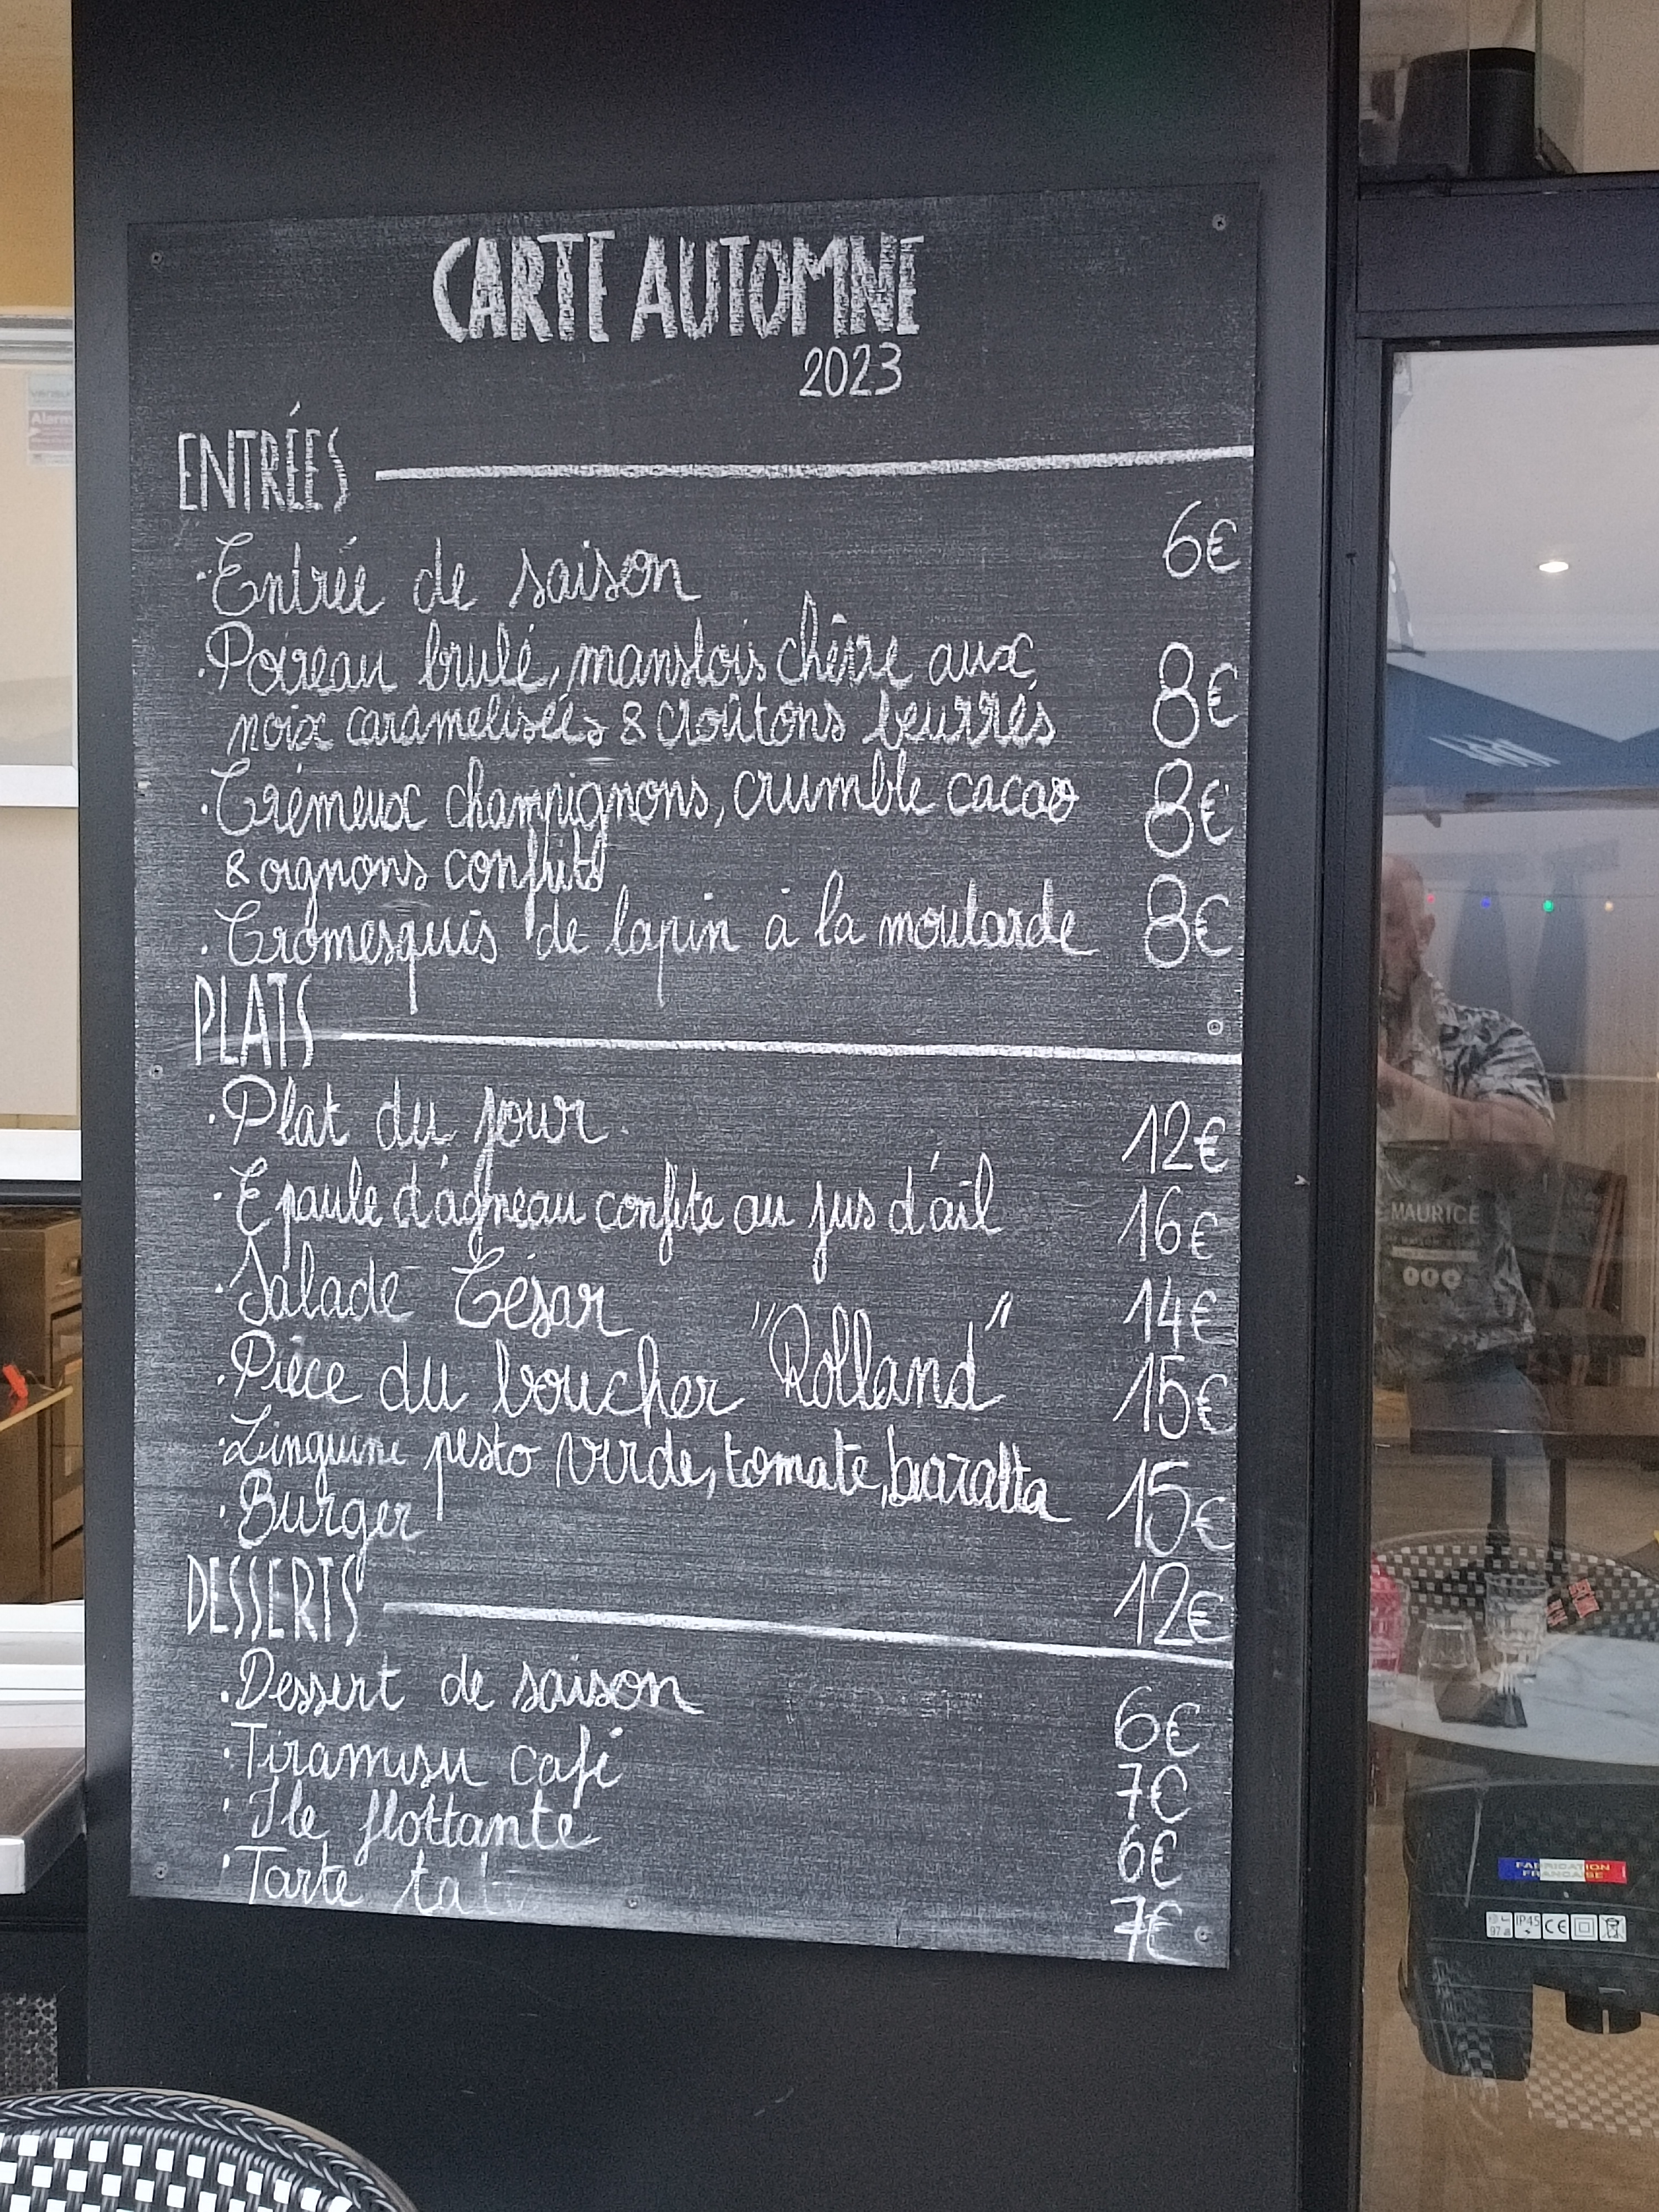 CARTE AUTOMNE
2023
ENTRÉES
· Entrée de saison 6€
· Poireau brulé, manslois chèvre aux 8€
noix caramelisées & croûtons beurrés
· Crémeux champignons, crumble cacao 8€
& oignons confits
· Cromesquis de lapin à la moutarde 8€
PLATS
· Plat du jour 12€
· Epaule d'agneau confite au jus d'ail 16€
· Salade César 14€
· Pièce du boucher "Rolland" 15€
· Linguine pesto verde, tomate, 15€
· Burger 12€
DESSERTS
· Dessert de saison 6€
· Tiramisu café 7€
· Ile flottante 6€
· Tarte 7€
MAURICE
FABRICATION
FRANÇAISE
IP45
CE
Alarm